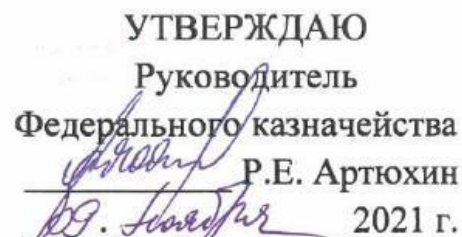 УТВЕРЖДАЮ
Руководитель
Федерального казначейства
Р.Е. Артюхин
09. ноября 2021 г.